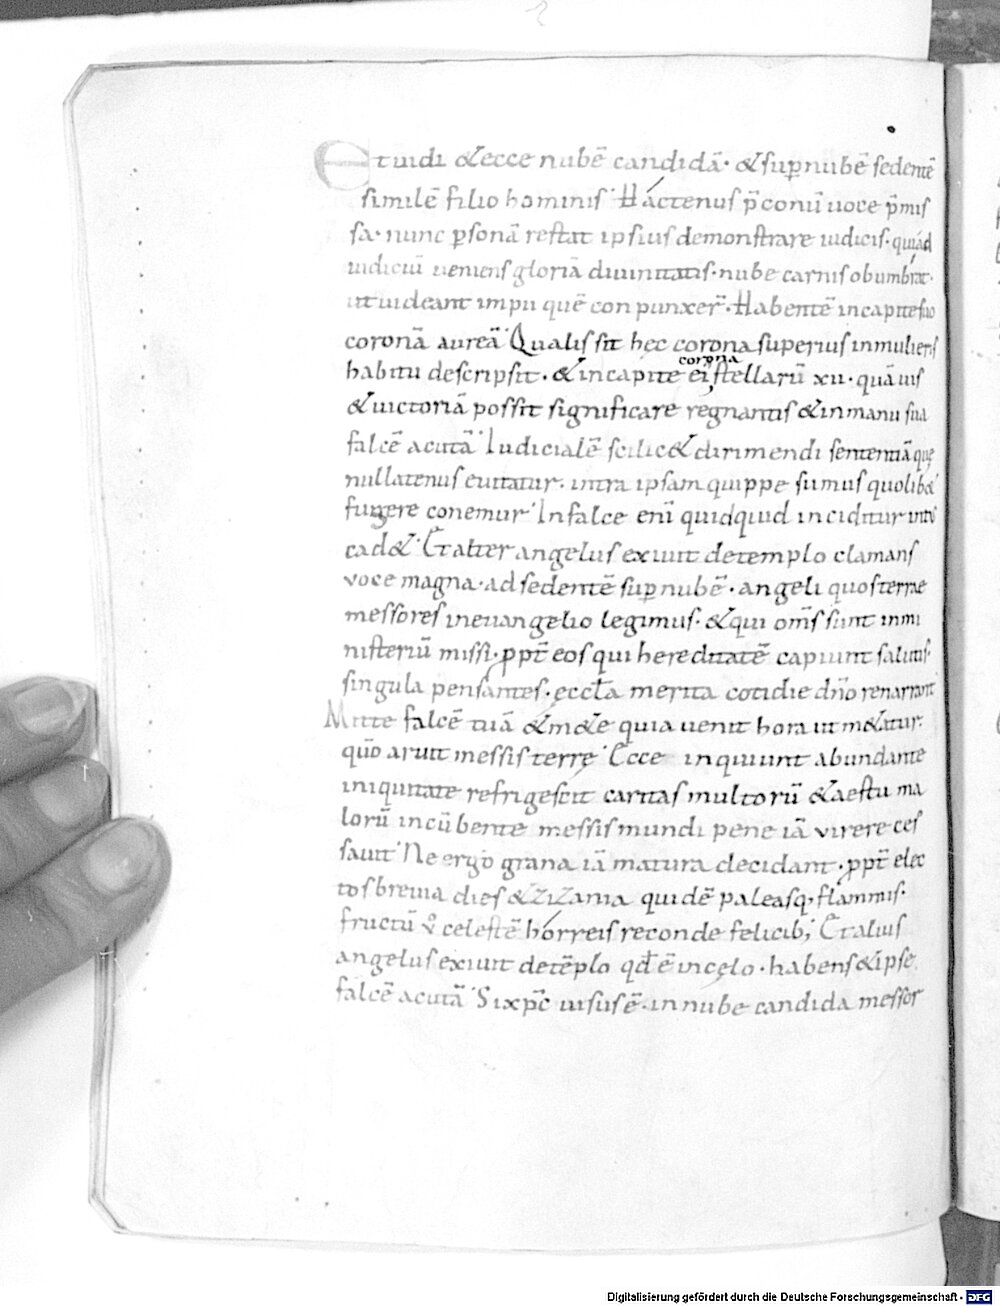 Et uidi &ecce nubē candidā· &sup̱ nubē sedentē
similē filio hominis· Hactenus p̄coniū uoce p̄mis
sa· nunc p̱sonā restat ipsius demonstrare iudicis· qui ad
iudiciū ueniens gloriā diuinitatis· nube carnis obumbrat·
ut uideant impii quē conpunxer̄· Habentē incapite suo
coronā aureā· Qualis sit hec corona superius inmulieris
habitu descripsit· &incapite ei corona stellarū xii· quāuis
&uictoriā possit significare regnantis &inmanu sua
falcē acutā· Iudicialē scilic& dirimendi sententiā quę
nullatenus euitatur· intra ipsam quippe sumus quolib&
fugere conemur· Infalce enī quidquid inciditur intus
cad&· Et alter angelus exiuit detemplo clamans
voce magna· adsedentē sup̱ nubē· angeli quos terrae
messores ineuangelio legimus· &qui om̄s sunt inmi
nisteriū missi· pp̄t eos qui hereditatē capiunt salutis·
singula pensantes· eccl̄a merita cotidie dn̄o renarrant
Mitte falcē tuā &m&e quia uenit hora ut m&atur·
qūo aruit messis terrę· Ecce inquiunt abundante
iniquitate refrigescit caritas multorū &aestu ma
lorū incūbente messis mundi pene iā virere ces
sauit· Ne ergo grana iā matura decidant· pp̄t elec
tos breuia dies &zizania quidē paleasq; flammis·
fructū v̊ celestē horreis reconde felicib; Et alius
angelus exiuit detēplo qd̄ ē incęlo· habens &ipse
falcē acutā· Si xp̄c uisus ē· in nube candida messor
Digitalisierung gefördert durch die Deutsche Forschungsgemeinschaft - DFG